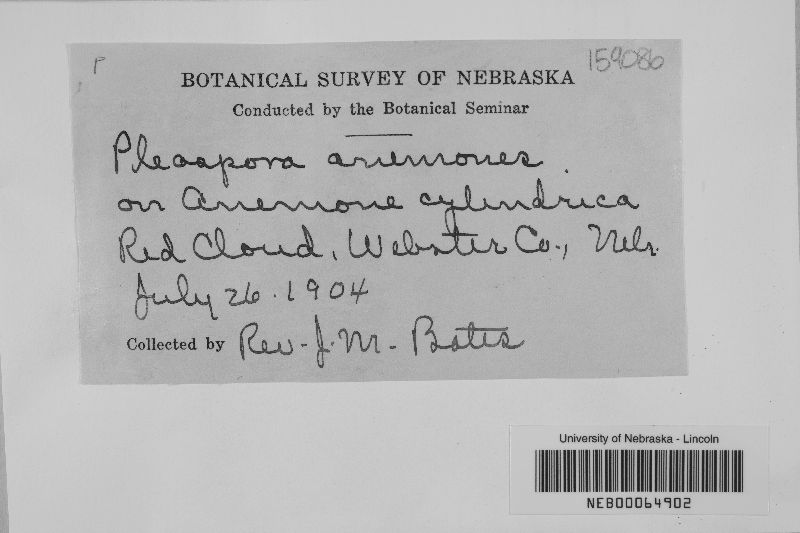 P
159086
BOTANICAL SURVEY OF NEBRASKA
Conducted by the Botanical Seminar
Pleospora anemones
on Anemone cylindrica
Red Cloud, Webster Co., Nebr.
July 26. 1904
Collected by Rev. J. M. Bates
University of Nebraska - Lincoln
NEB00064902